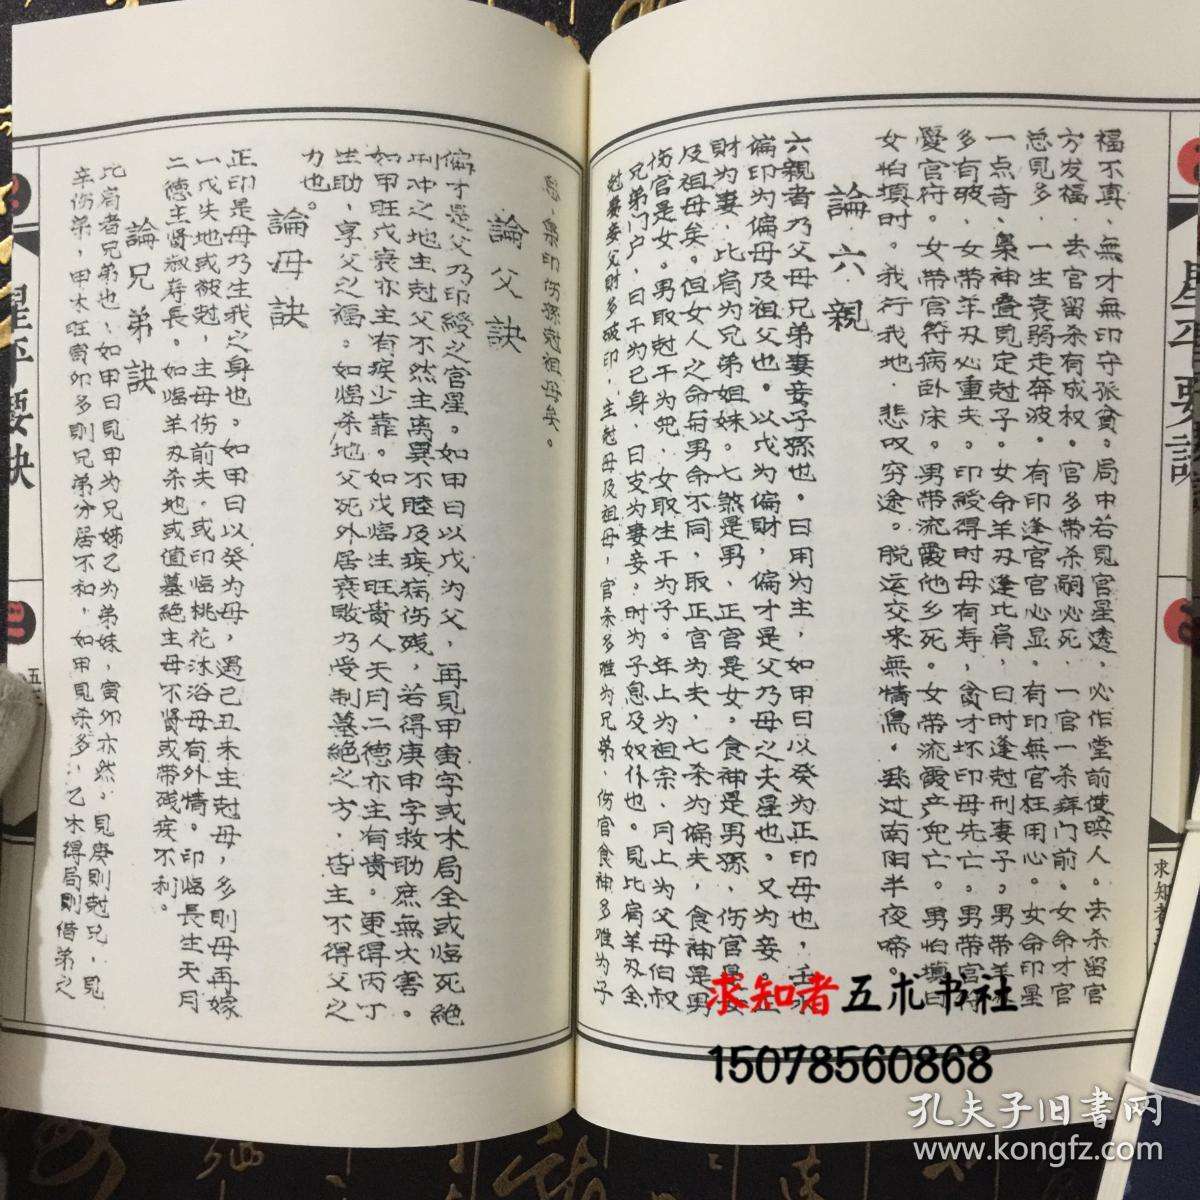 福不真，無才無印守孤貧。局中若見官星透，必作堂前使喚人。去杀留官
方发福，去官留杀有成权。官多带杀嗣必死，一官一杀殍门前。女命才官
忌見多，一生衰弱走奔波。有印逢官官必显，有印無官枉用心。女命印星
一点奇，梟神叠見定尅子。女命羊刃逢比肩，日时逢尅刑妻子。男带羊刃
多有破，女带羊刃必重夫。印綬得时母有寿，貪才坏印母先亡。男带官符
愛官符。女带官符病卧床。男带流霞他乡死。女带流霞产兒亡。男怕填日
女怕填时。我行我地，悲叹穷途。脱运交来無情馬。
過南阳半夜啼。
論六親
六親者乃父母兄弟妻妾子孫也。日用为主，如甲日以癸为正印母也，壬水
偏印为偏母及祖父也。以戊为偏財，偏才是父乃母之夫星也。又为妾。正
財为妻，比肩为兄弟姐妹。七煞是男，正官是女。食神是男孫，伤官是女
及祖母矣。但女人之命與男命不同，取正官为夫，七杀为偏夫，食神是男
伤官是女。男取尅干为兜，女取生干为子。年上为祖宗，月上为父母伯叔
兄弟门户，日干为己身，日支为妻妾，时为子息及奴仆也。見比肩羊刃全
尅妻妾父財多破印，主尅母及祖母，官杀多难为兄弟，伤官食神多难为子
息，梟印伤孫尅祖母矣。
論父訣
偏才是父乃印綬之官星。如甲日以戊为父，再見甲寅字或木局全或临死絶
刑冲之地主尅父不然主离異不睦及疾病伤残，若得庚申字救助庶無大害。
如甲旺戊衰亦主有疾少靠。如戊临生旺貴人天月二德亦主有貴。更得丙丁
生助，享父之福。如临杀地父死外居衰敗乃受制墓絶之方，皆主不得父之
力也。
論母訣
正印是母乃生我之身也。如甲日以癸为母，遇己丑未主尅母，多則母再嫁
一戊失地或被尅，主母伤前夫，或印临桃花沐浴母有外情。印临長生天月
二德主賢淑寿長。如临羊刃杀地或值墓絶主母不賢或带残疾不利。
論兄弟訣
比肩者兄弟也，如甲日見甲为兄姊乙为弟妹，寅卯亦然。見庚則尅兄，見
辛伤弟，甲木旺寅卯多則兄弟分居不和，如甲見杀多，乙木得局則借弟之
星平要訣
星平要訣
求知者五术书社
15078560868
孔夫子旧書网
www.kongfz.com